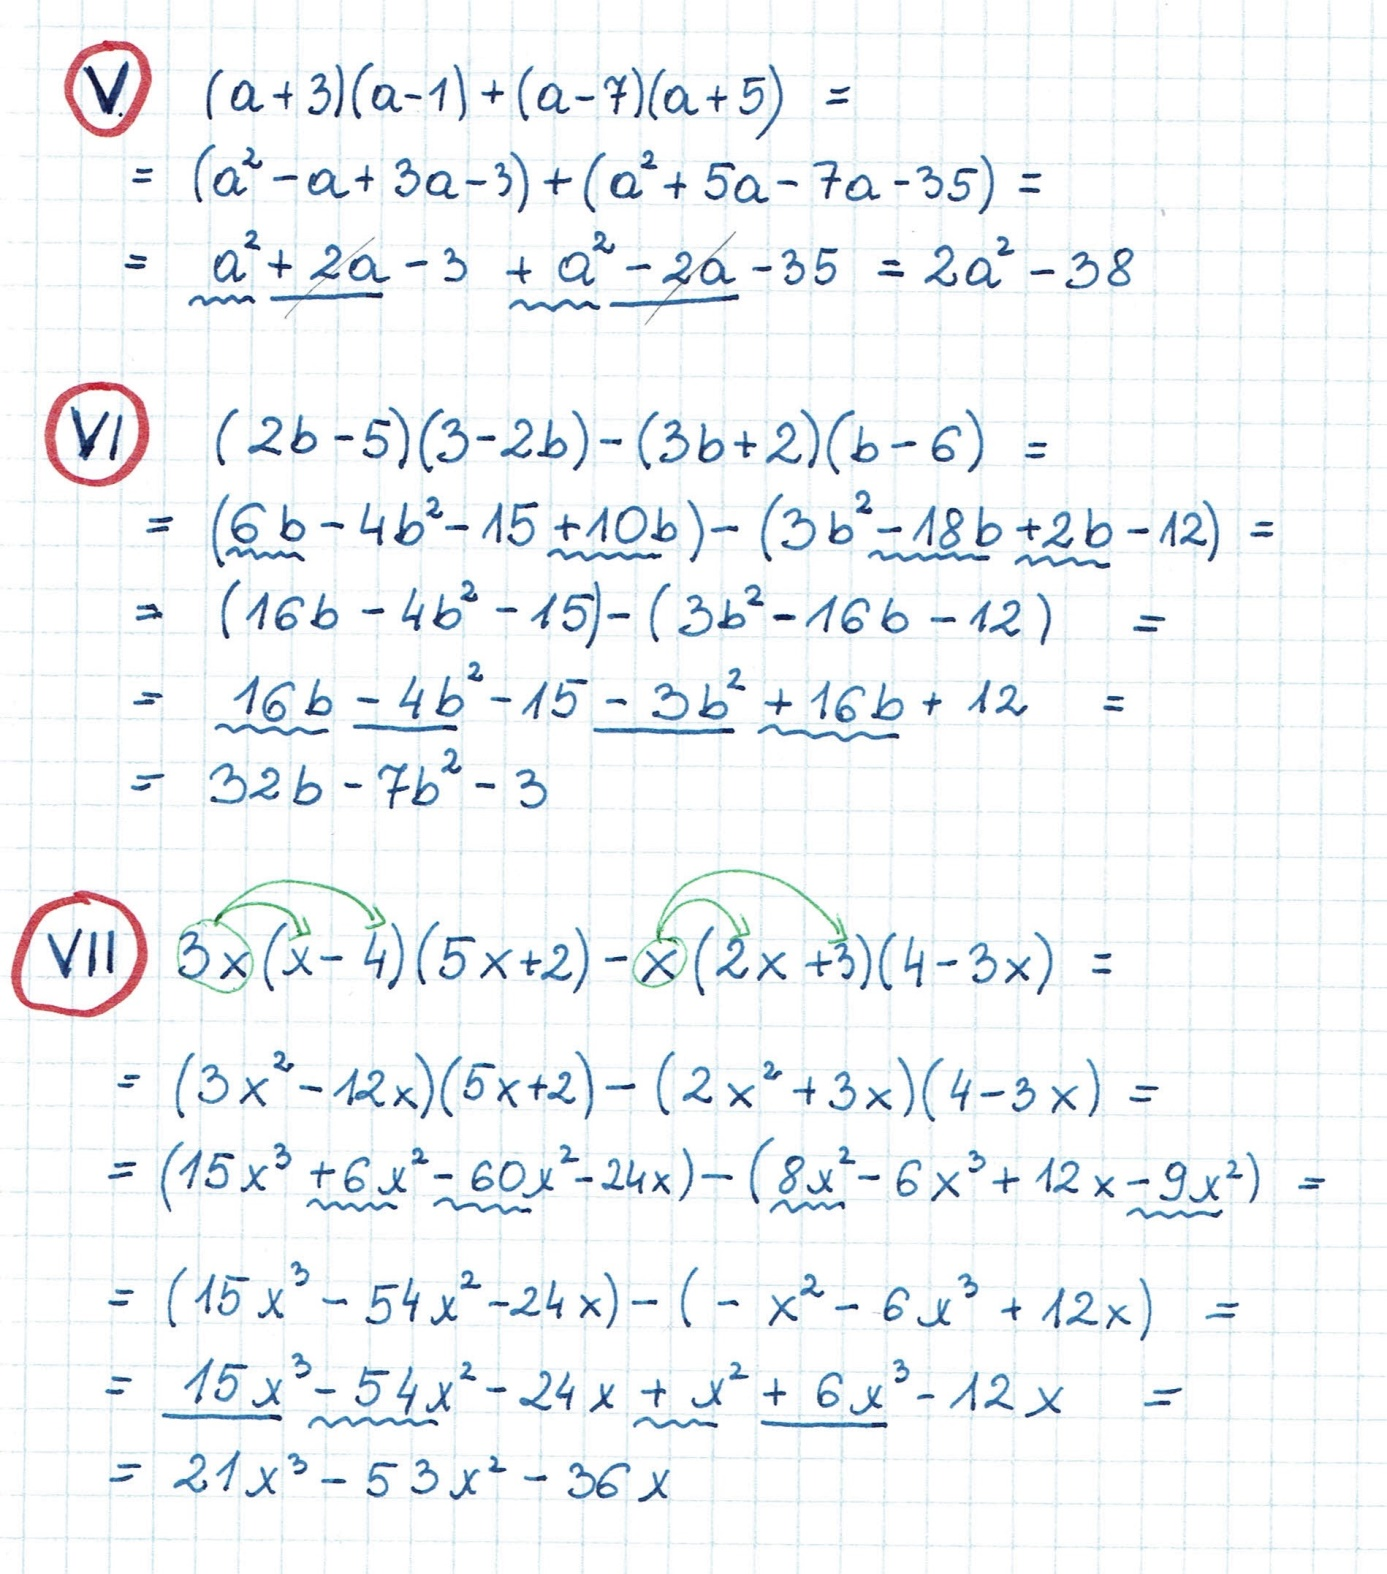 V. (a+3)(a-1)+(a-7)(a+5) =
= (a²-a+3a-3)+(a²+5a-7a-35) =
= a²+2a-3 +a²-2a-35 = 2a²-38
VI (2b-5)(3-2b)-(3b+2)(b-6) =
= (6b-4b²-15+10b)-(3b²-18b+2b-12) =
= (16b-4b²-15)-(3b²-16b-12) =
= 16b-4b²-15-3b²+16b+12 =
= 32b-7b²-3
VII 3x(x-4)(5x+2)-x(2x+3)(4-3x) =
= (3x²-12x)(5x+2)-(2x²+3x)(4-3x) =
= (15x³+6x²-60x²-24x)-(8x²-6x³+12x-9x²) =
= (15x³-54x²-24x)-(-x²-6x³+12x) =
= 15x³-54x²-24x+x²+6x³-12x =
= 21x³-53x²-36x